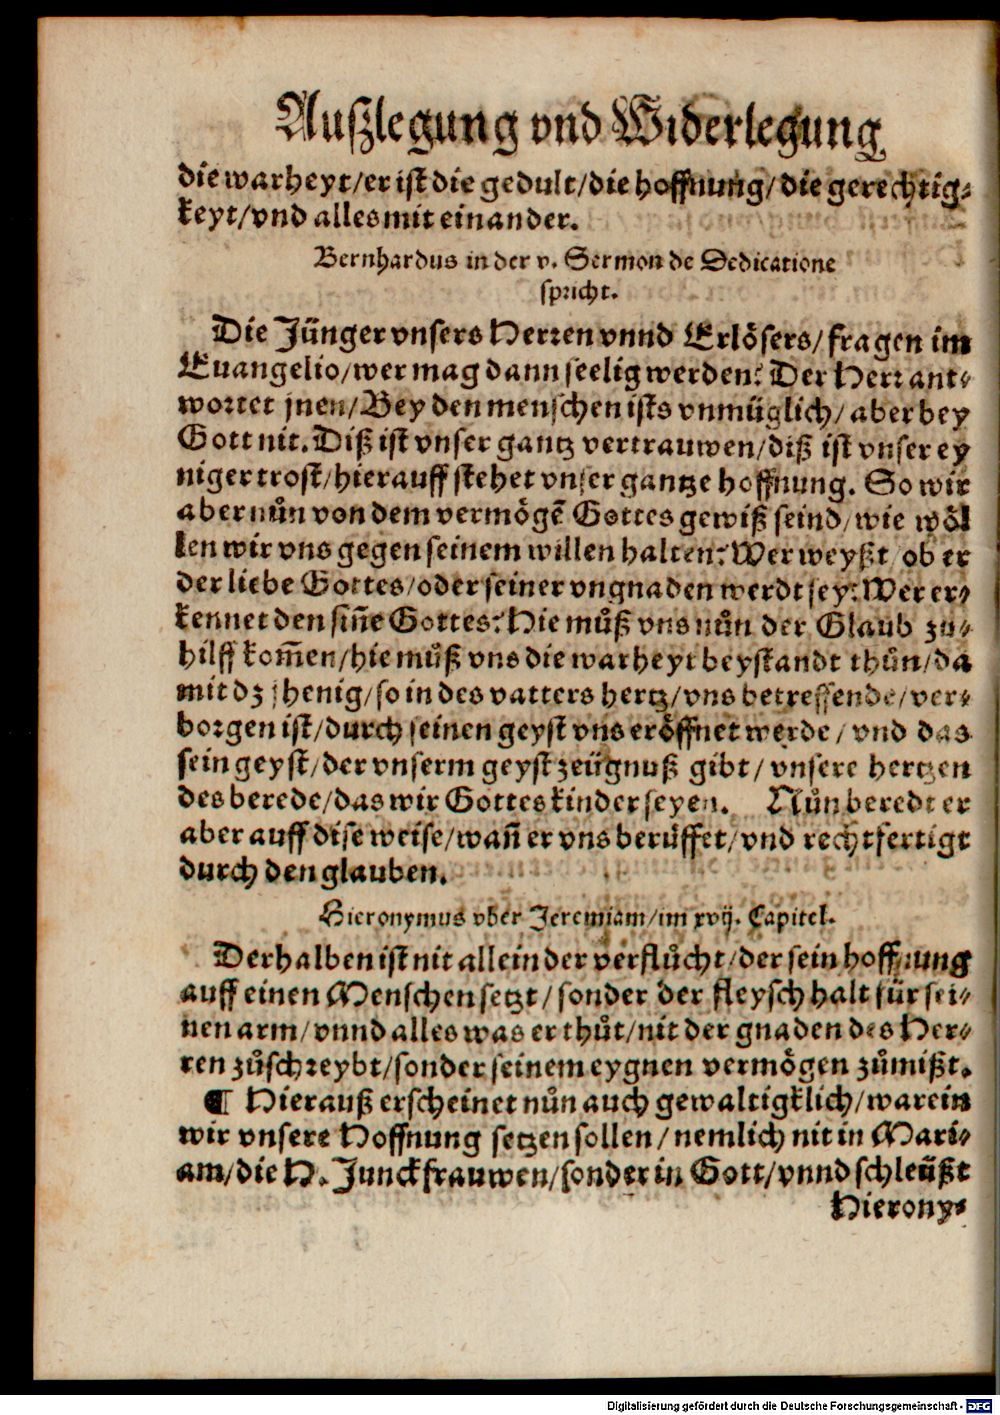 Außlegung vnd Widerlegung
die warheyt/er ist die gedult/die hoffnung/die gerechtig⸗
keyt/vnd alles mit einander.
Bernhardus in der v. Sermon de Dedicatione
spricht.
Die Jünger vnsers Herren vnnd Erlösers/fragen im
Euangelio/wer mag dann seelig werden? Der Herr ant⸗
wortet jnen/Bey den menschen ists vnmüglich/aber bey
Gott nit. Diß ist vnser gantz vertrauwen/diß ist vnser ey
niger trost/hierauff stehet vnser gantze hoffnung. So wir
aber nůn von dem vermögē Gottes gewiß seind/wie wöl
len wir vns gegen seinem willen halten? Wer weyßt/ob er
der liebe Gottes/oder seiner vngnaden werdt sey? Wer er⸗
kennet den siñe Gottes? Hie můß vns nůn der Glaub zů⸗
hilff kom̃en/hie můß vns die warheyt beystandt thůn/da
mit dz jhenig/so in des vatters hertz/vns betreffende/ver⸗
borgen ist/durch seinen geyst vns eröffnet werde/vnd das
sein geyst/der vnserm geyst zeügnuß gibt/vnsere hertzen
des berede/das wir Gottes kinder seyen. Nůn beredt er
aber auff dise weise/wañ er vns berůffet/vnd rechtfertigt
durch den glauben.
Hieronymus vber Jeremiam/im xvij. Capitel.
Derhalben ist nit allein der verflůcht/der sein hoffnung
auff einen Menschen setzt/sonder der fleysch halt für sei⸗
nen arm/vnnd alles was er thůt/nit der gnaden des Her⸗
ren zůschreybt/sonder seinem eygnen vermögen zůmißt.
¶ Hierauß erscheinet nůn auch gewaltigklich/warein
wir vnsere Hoffnung setzen sollen/nemlich nit in Mari⸗
am/die H. Junckfrauwen/sonder in Gott/vnnd schleüßt
Hierony⸗
Digitalisierung gefördert durch die Deutsche Forschungsgemeinschaft - DFG